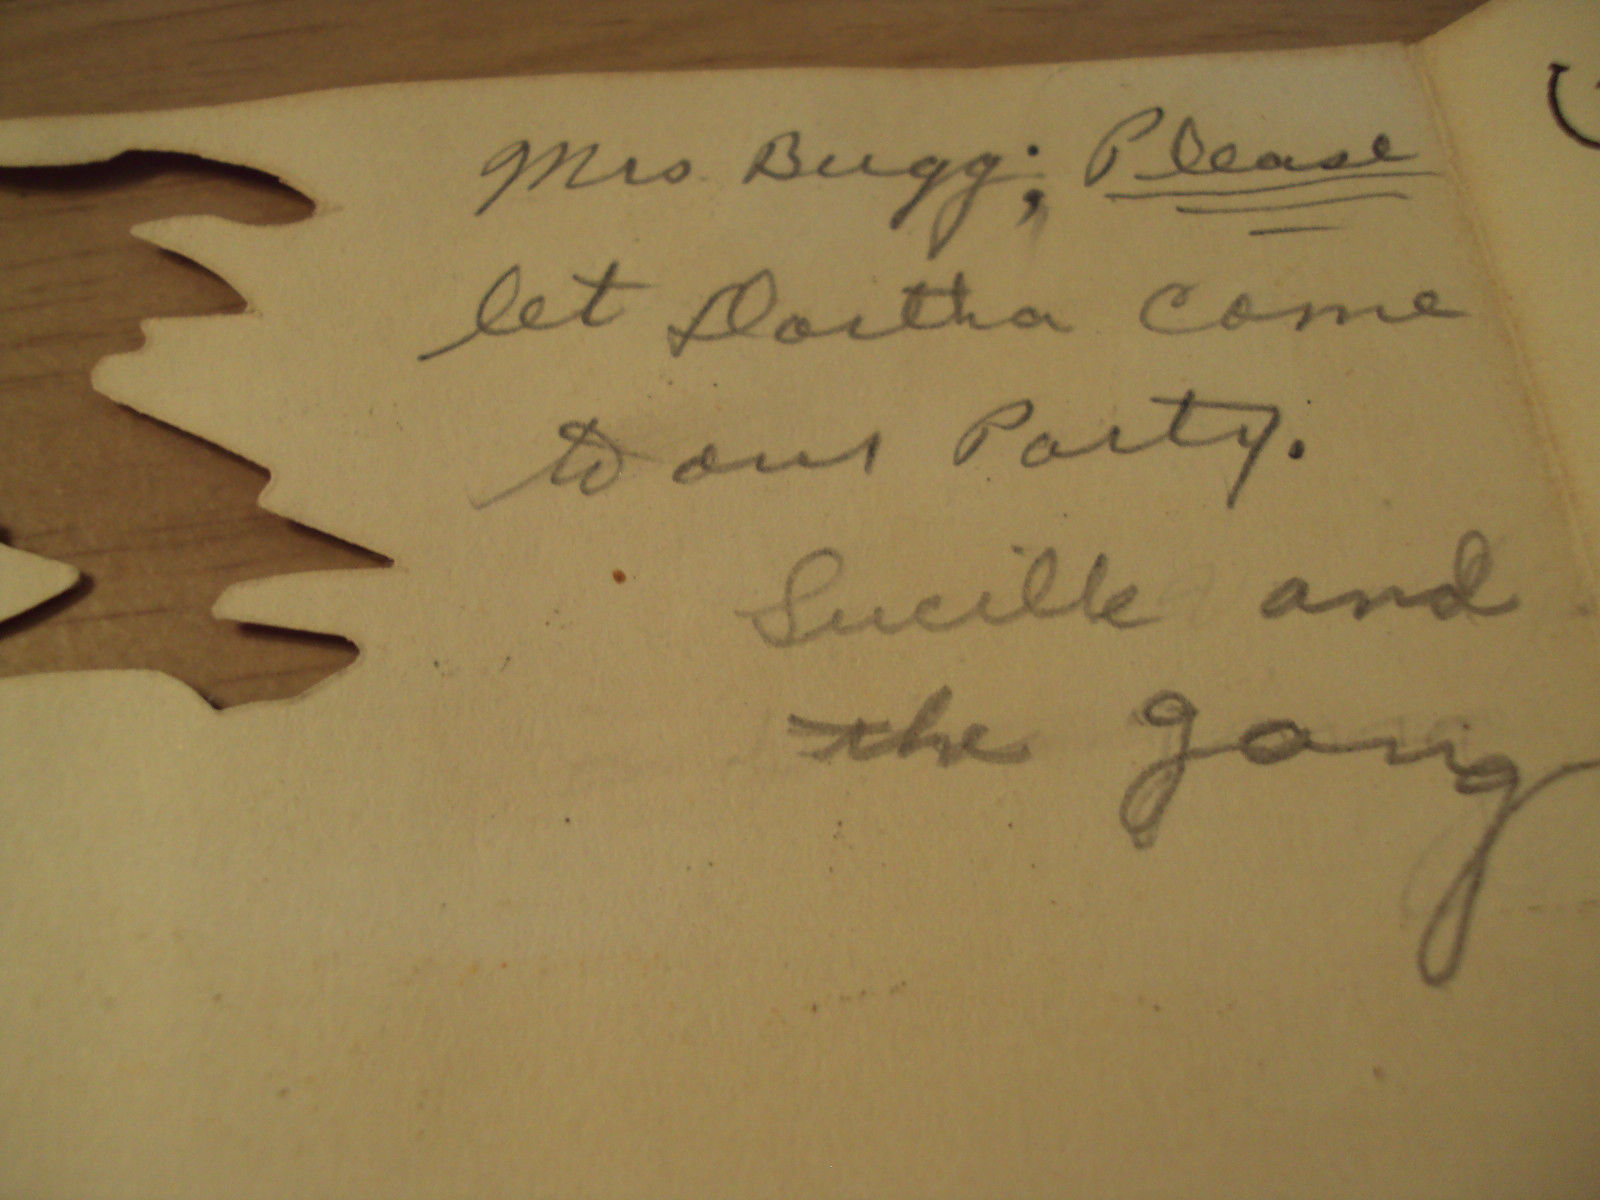 Mrs Bugg; Please
let Dortha come
to our Party.
Lucille and
the gang